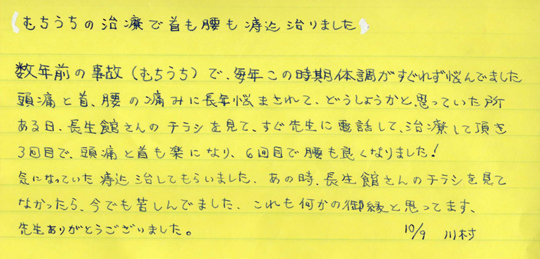 (むちうちの治療で首も腰も痔迄治りました)
数年前の事故(むちうち)で、毎年この時期体調がすぐれず悩んでました
頭痛と首、腰の痛みに長年悩まされて、どうしようかと思っていた所
ある日、長生館さんのチラシを見て、すぐ先生に電話して、治療して頂き
3回目で、頭痛と首も楽になり、6回目で腰も良くなりました!
気になっていた痔迄治してもらいました。あの時、長生館さんのチラシを見て
なかったら、今でも苦しんでました。これも何かの御縁と思ってます、
先生ありがとうございました。 10/9 川村